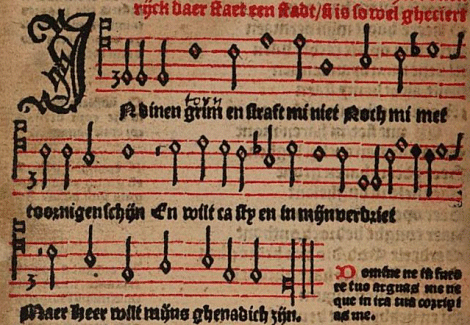 rijck daer staet een stadt/ si is so wel gheciert
torn
IN dinen grim en straft mi niet Noch mi met
toornigen schijn En wilt ca sty en in mijn verdriet
Maer heer wilt mijns ghenadich zijn.
Domine ne in furo
re tuo arguas me ne
que in ira tua corripi
as me.